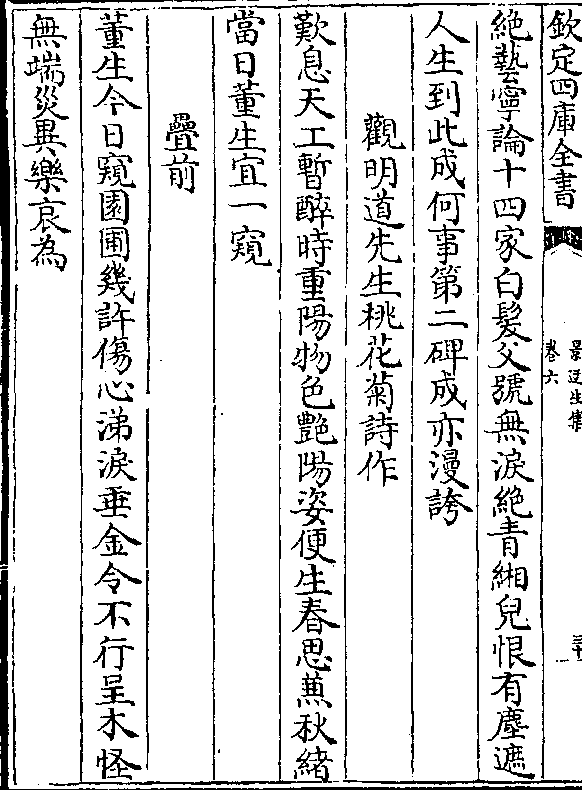 欽定四庫全書
景迂生集
卷六
絶藝寧論十四家白髮父號無淚絶青緗兒恨有塵遮
人生到此成何事第二碑成亦漫誇
觀明道先生桃花菊詩作
歎息天工暫醉時重陽物色艷陽姿便生春思蕪秋緒
當日董生宜一窺
疊前
董生今日窺園圃幾許傷心涕淚垂金令不行呈木怪
無端災異樂哀為